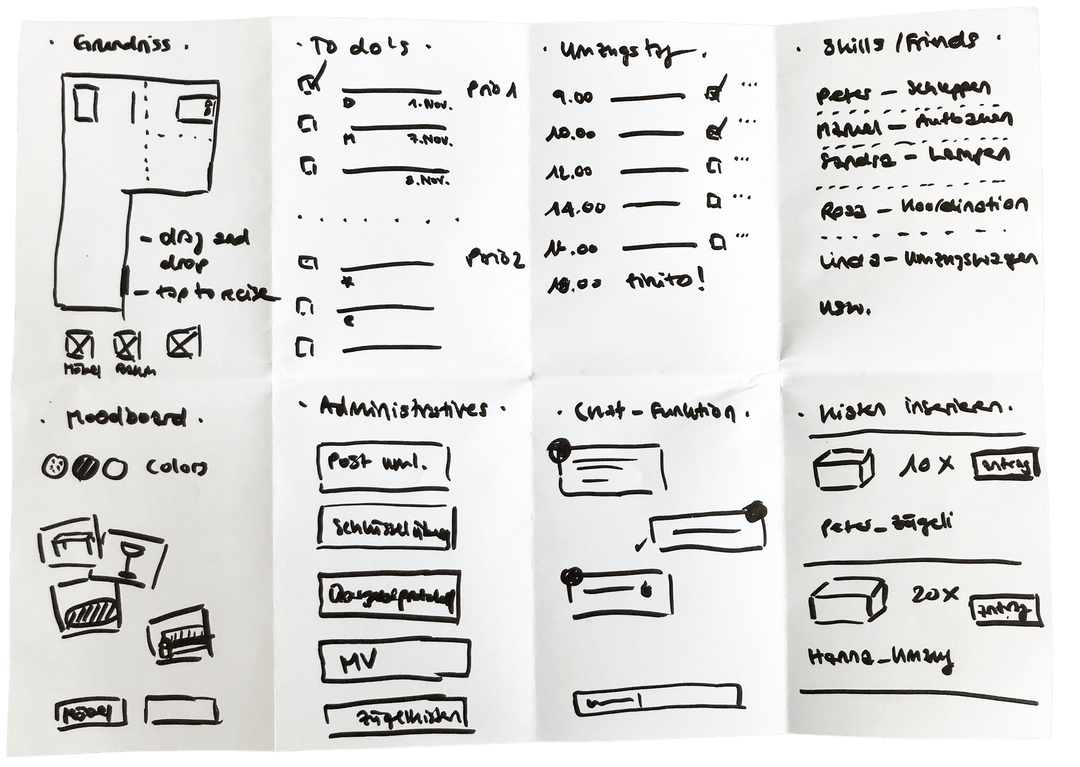 · Grundriss ·
- drag and
drop
- tap to recize
Möbel Raum
· To do's ·
Prio 1
D 1. Nov.
M 7. Nov.
8. Nov.
Prio 2
C
· Umzugstag ·
9.00 ...
10.00 ...
12.00 ...
14.00 ...
...
18.00 finito!
· Skills / Friends ·
Peter - Schleppen
Manuel - Aufbauen
Sandra - Lampen
Rosa - Koordination
Linda - Umzugswagen
usw.
· Moodboard ·
Colors
Möbel
· Administratives ·
Post uml.
Schlüsselübung
MV
Zügelkisten
· Chat - Funktion ·
· Kisten inserieren ·
10 X
Peter_Zügeli
20 X
Hanna_Umzug